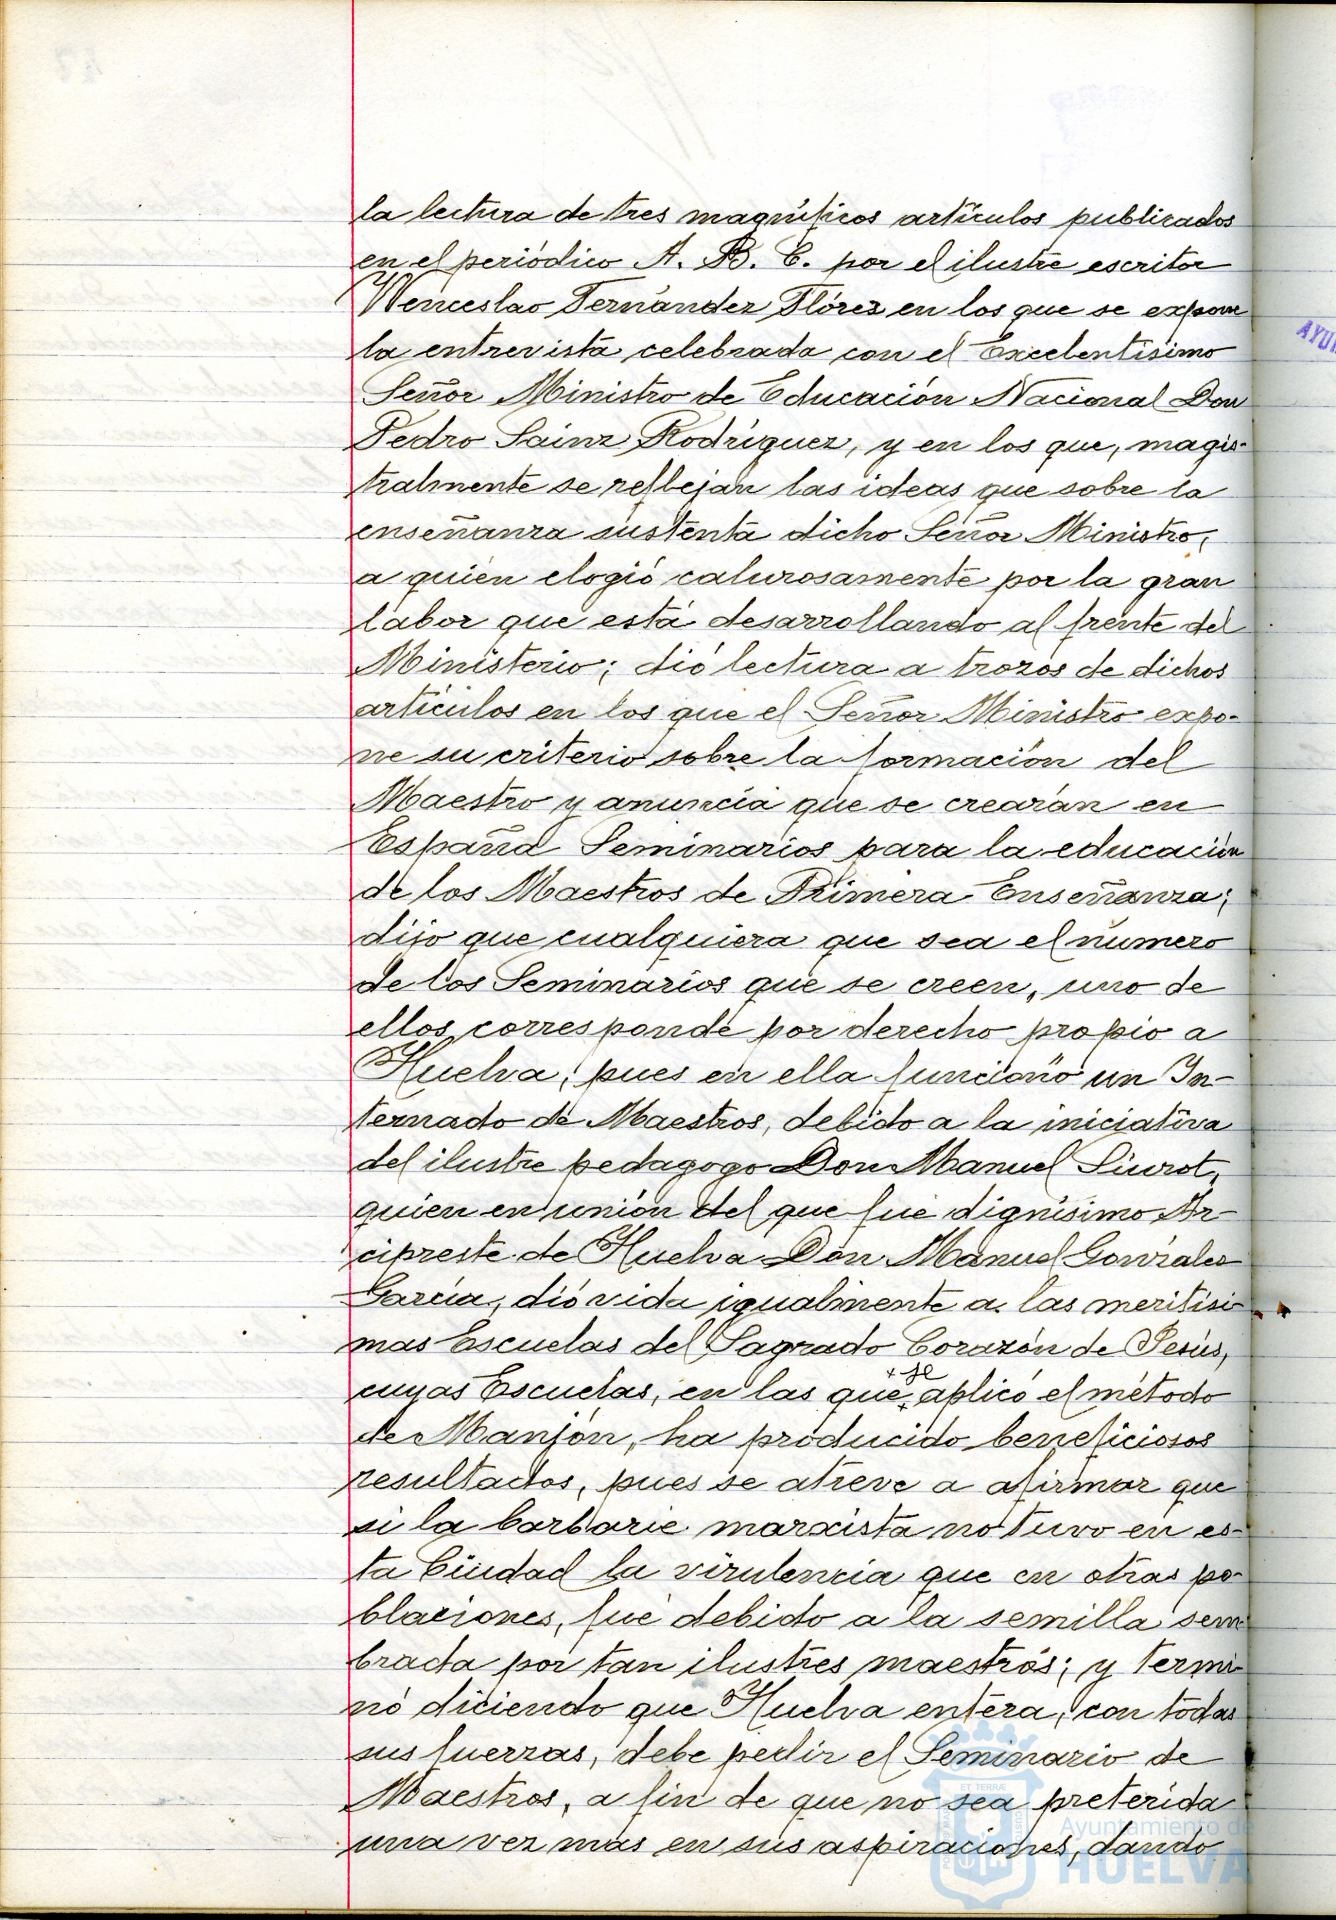 la lectura de tres magníficos artículos publicados
en el periódico A. B. C. por el ilustre escritor
Wenceslao Fernández Flórez en los que se expone
la entrevista celebrada con el Excelentísimo
Señor Ministro de Educación Nacional Don
Pedro Sainz Rodríguez, y en los que, magis-
tralmente se reflejan las ideas que sobre la
enseñanza sustenta dicho Señor Ministro,
a quien elogió calurosamente por la gran
labor que está desarrollando al frente del
Ministerio; dió lectura a trozos de dichos
artículos en los que el Señor Ministro expo-
ne su criterio sobre la formación del
Maestro y anuncia que se crearán en
España Seminarios para la educación
de los Maestros de Primera Enseñanza;
dijo que cualquiera que sea el número
de los Seminarios que se creen, uno de
ellos corresponde por derecho propio a
Huelva, pues en ella funcionó un In-
ternado de Maestros, debido a la iniciativa
del ilustre pedagogo Don Manuel Siurot,
quien en unión del que fué dignísimo Ar-
cipreste de Huelva Don Manuel González
García, dió vida igualmente a las meritísi-
mas Escuelas del Sagrado Corazón de Jesús,
cuyas Escuelas, en las que se aplicó el método
de Manjón, ha producido beneficiosos
resultados, pues se atreve a afirmar que
si la barbarie marxista no tuvo en es-
ta Ciudad la virulencia que en otras po-
blaciones, fué debido a la semilla sem-
brada por tan ilustres maestros; y termi-
nó diciendo que Huelva entera, con todas
sus fuerzas, debe pedir el Seminario de
Maestros, a fin de que no sea preterida
una vez más en sus aspiraciones, dando
AYU
ET TERRÆ
Ayuntamiento de
HUELVA